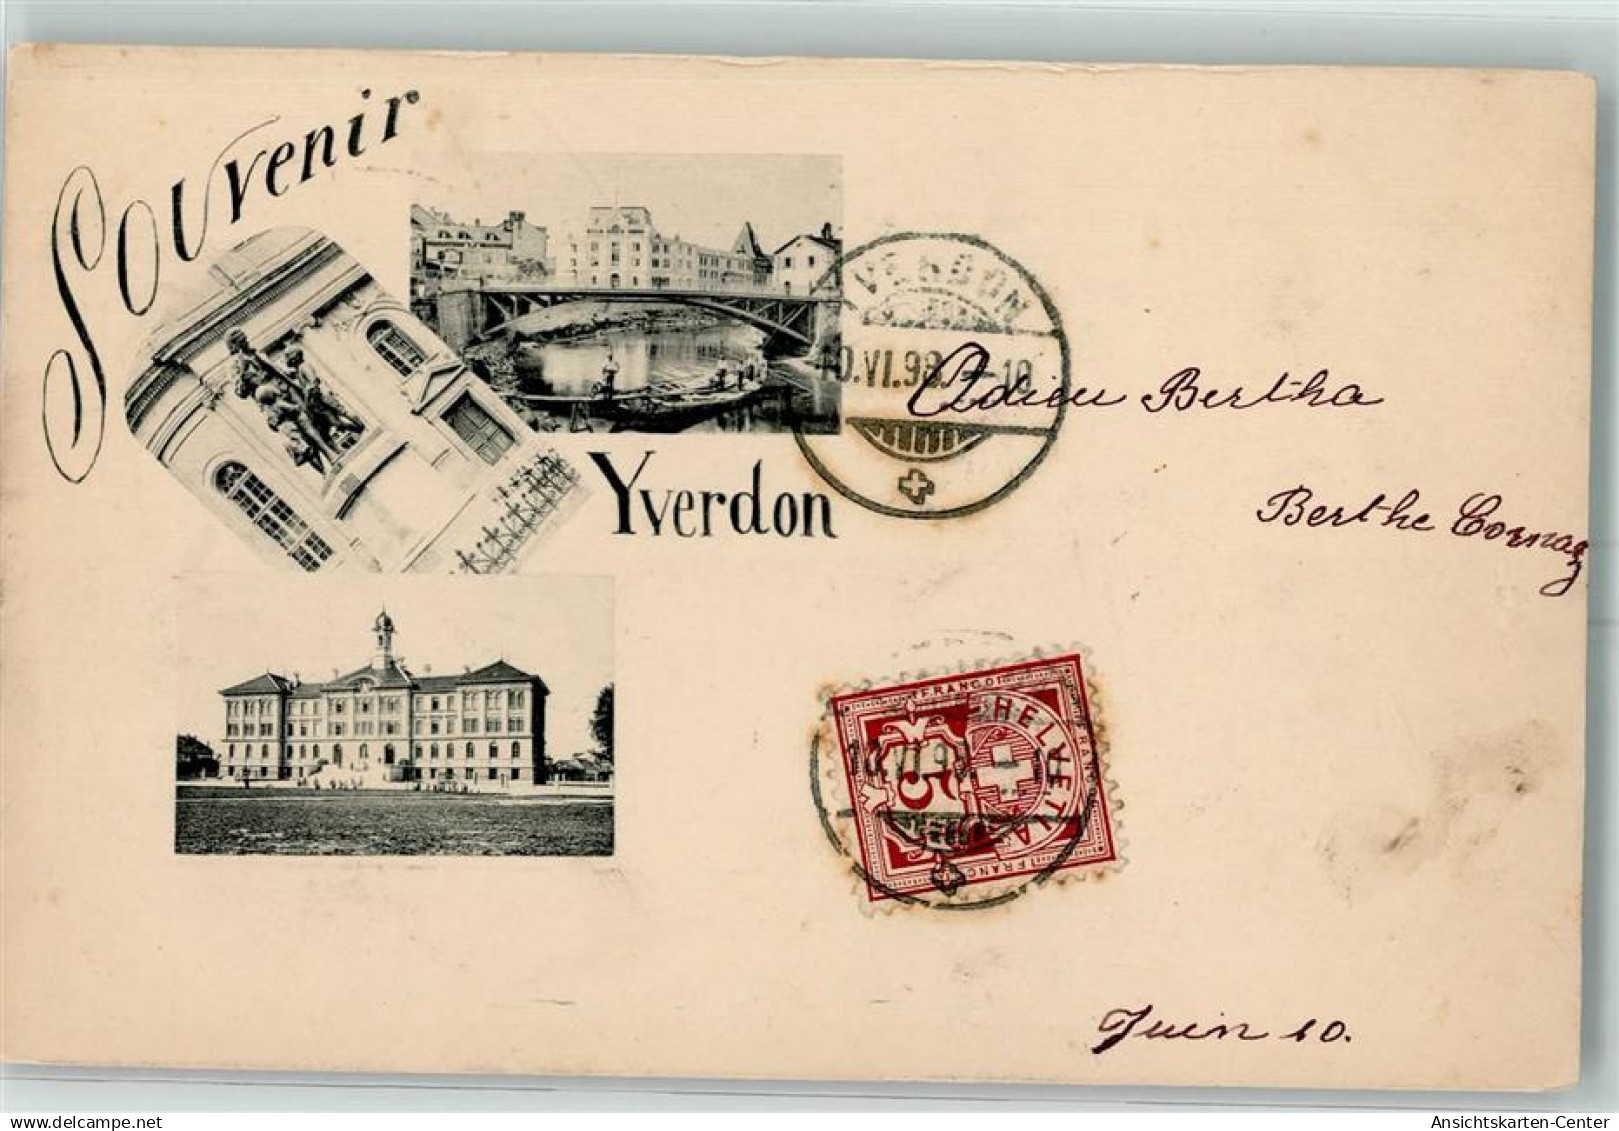 Souvenir
YVERDON
10.VI.98.
Adieu Bertha
Yverdon
Berthe Cornaz
FRANCO
HELVETIA
5
FRANCO
FRANCO
10.VI.98.
Juin 10.
AnsichtsKarten-Center